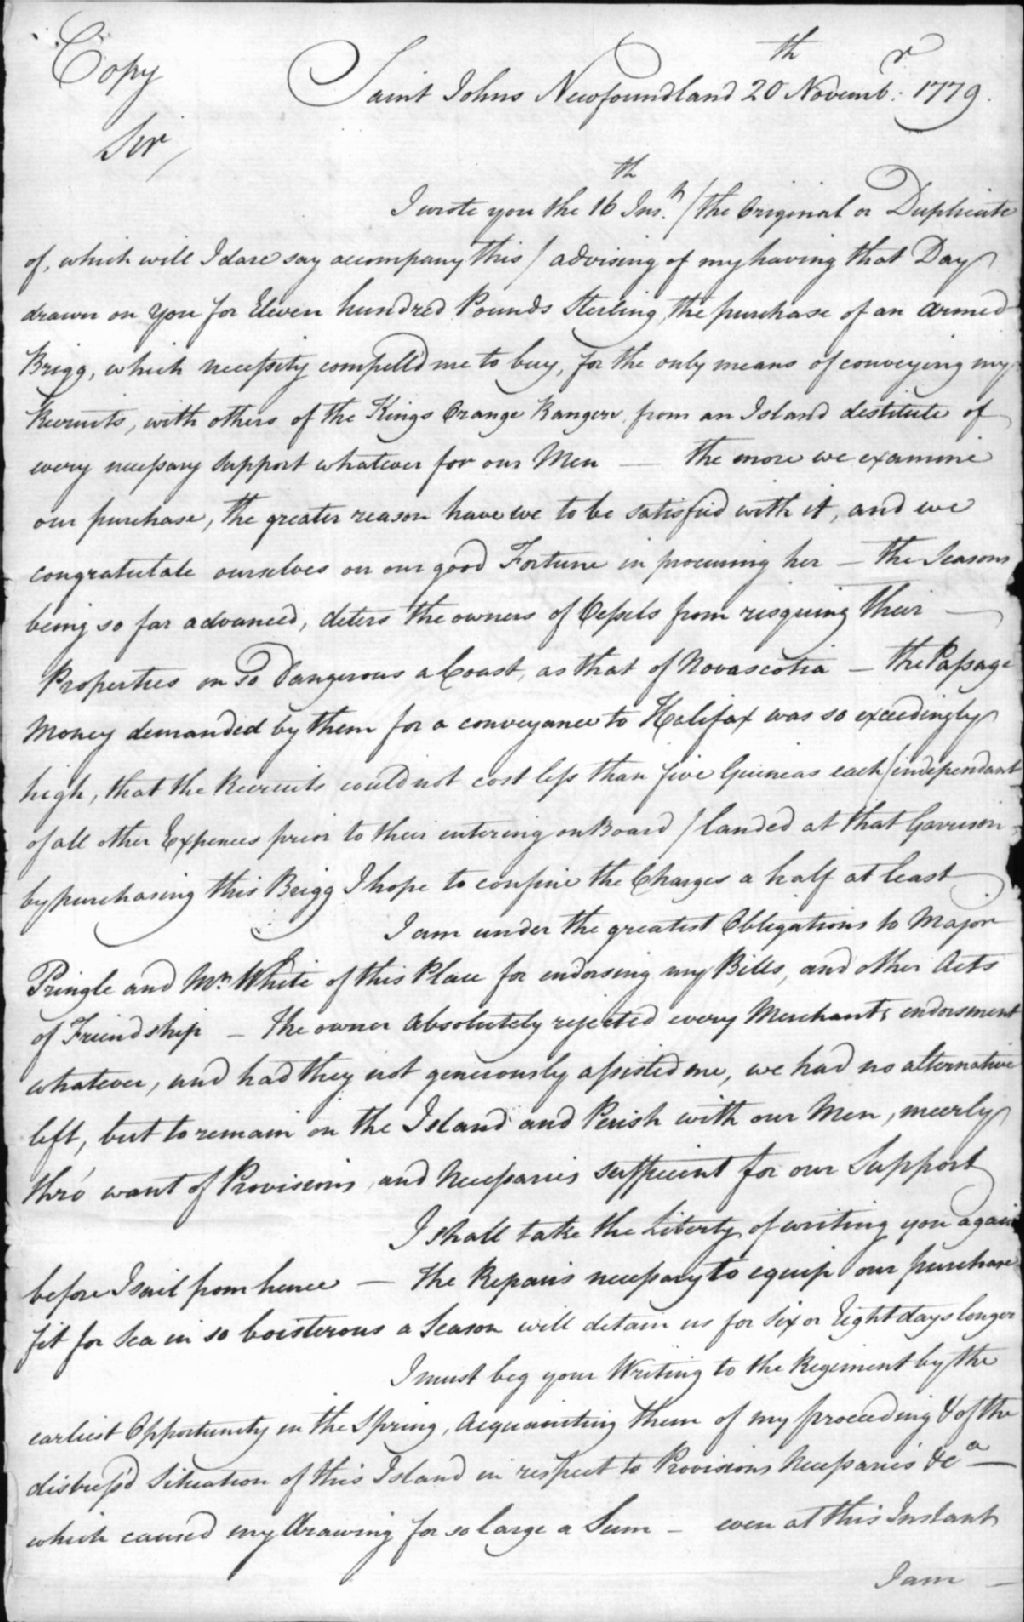 Copy
Saint Johns Newfoundland 20th Novembr. 1779.
Sir,
I wrote you the 16th Inst. / the Original or Duplicate
of, which will I dare say accompany this / advising of my having that Day
drawn on you for Eleven hundred Pounds Sterling, the purchase of an armed
Brigg, which necessity compell'd me to buy, for the only means of conveying my
Recruits, with others of the Kings Orange Rangers, from an Island destitute of
every necessary support whatever for our Men — the more we examine
our purchase, the greater reason have we to be satisfied with it, and we
congratulate ourselves on our good Fortune in procuring her — the Seasons
being so far advanced, deters the owners of Vessels from risquing their —
Properties on So dangerous a Coast, as that of Novascotia — the Passage
Money demanded by them for a conveyance to Halifax was so exceedingly
high, that the Recruits could not cost less than five Guineas each / independant
of all other Expences prior to their entering on Board / landed at that Garrison
by purchasing this Brigg I hope to confine the Charges a half at least
I am under the greatest Obligations to Major
Pringle and Mr. White of this Place for endorsing my Bills, and other Acts
of Friendship — the owner absolutely rejected every Merchants endorsment
whatever, and had they not generously assisted me, we had no alternative
left, but to remain on the Island and Perish with our Men, meerly
thro' want of Provisions, and Necessaries sufficient for our Support
I shall take the Liberty of writing you again
before I sail from hence — the Repairs necessary to equip our purchase
fit for Sea in so boisterous a Season will detain us for Six or Eight days longer
I must beg your Writing to the Regiment by the
earliest Opportunity in the Spring, Acquainting them of my proceeding & of the
distress'd Situation of this Island in respect to Provisions Necessaries &ca —
which caused my drawing for so large a Sum — even at this Instant
I am —